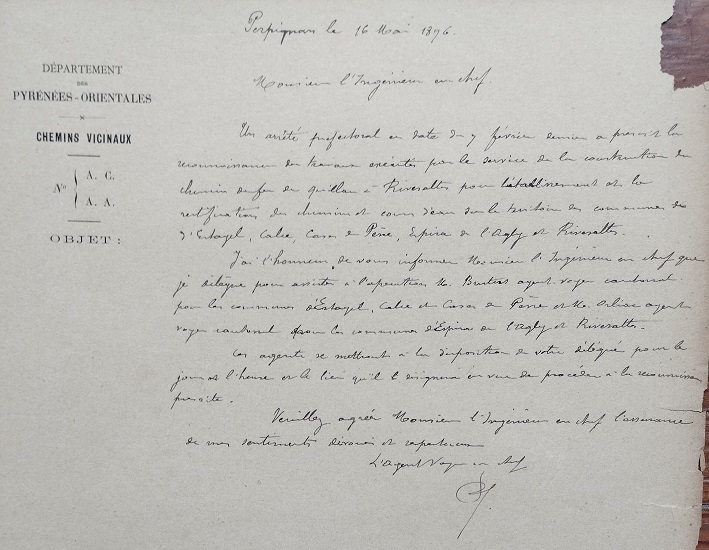 Perpignan le 16 Mai 1896.
DÉPARTEMENT
DES
PYRÉNÉES-ORIENTALES
CHEMINS VICINAUX
Nos { A. C.
A. A.
OBJET :
Monsieur l'Ingénieur en chef.
Un arrêté préfectoral en date du 7 février dernier a prescrit la
reconnaissance des travaux exécutés par le service de la construction du
chemin de fer de Quillan à Rivesaltes pour l'établissement et la
rectification des chemins et cours d'eau sur le territoire des communes de
d'Estagel, Calce Cases de Pène, Espira de l'Agly et Rivesaltes.
J'ai l'honneur de vous informer Monsieur l'Ingénieur en chef que
je délègue pour assister à l'opération M. agent voyer cantonal
pour les communes d'Estagel, Calce et Cases de Pène et M. agent
voyer cantonal pour les communes d'Espira de l'Agly et Rivesaltes.
Ces agents se mettront à la disposition de votre délégué pour le
jour et l'heure et le lieu qu'il désignera en vue de procéder à la reconnaissance
prescrite.
Veuillez agréer Monsieur l'Ingénieur en chef l'assurance
de mes sentiments dévoués et respectueux
L'Agent Voyer en chef